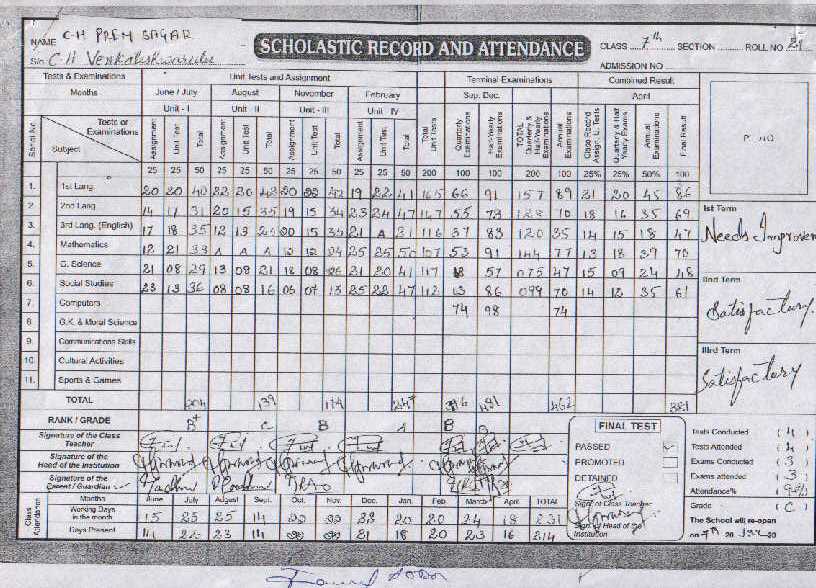 NAME C-H PREM SAGAR
S/o C-H Venkateshwarulu
SCHOLASTIC RECORD AND ATTENDANCE
CLASS 7th SECTION ROLL NO 21
ADMISSION NO
Tests & Examinations Unit Tests and Assignment Terminal Examinations Combined Result
Months June / July August November February Sep. Dec. April
Unit - I Unit - II Unit - III Unit - IV
Serial No. Tests or Examinations Subject
Assignment Unit Test Total Assignment Unit Test Total Assignment Unit Test Total Assignment Unit Test Total Total Unit Tests Quarterly Examinations Half-Yearly Examinations TOTAL Quarterly & Half-Yearly Examinations Annual Examinations Class Record Assign. U. Tests Quarterly & Half Yearly Exams Annual Examinations Final Result
25 25 50 25 25 50 25 25 50 25 25 50 200 100 100 200 100 25% 25% 50% 100
1. 1st Lang. 20 20 40 22 20 42 20 42 19 22 41 165 66 91 157 89 21 20 45 86
2. 2nd Lang. 14 17 31 20 15 35 19 15 34 23 24 47 147 55 73 128 70 18 16 35 69
3. 3rd Lang. (English) 17 18 35 12 13 20 15 35 21 A 21 116 37 83 120 35 14 15 18 47
4. Mathematics 12 21 33 A A A 12 12 24 25 25 50 107 53 91 144 77 13 18 39 70
5. G. Science 21 08 29 13 08 21 18 08 26 21 20 41 117 18 57 075 47 15 09 24 48
6. Social Studies 23 13 36 08 08 16 06 07 13 25 22 47 112 13 86 099 70 14 12 35 61
7. Computors 74 98 74
8. G.K. & Moral Science
9. Communications Skills
10. Cultural Activities
11. Sports & Games
TOTAL 204 139 174 247 481 462 381
RANK / GRADE B+ C B A B
Ist Term
Needs Improvem
IInd Term
Satisfactory
IIIrd Term
Satisfactory
Signature of the Class Teacher
Signature of the Head of the Institution
Signature of the Parent / Guardian
FINAL TEST
PASSED
PROMOTED
DETAINED
Sign of Class Teacher
Sign of Head of the Institution
Tests Conducted ( 4 )
Tests Attended ( 4 )
Exams Conducted ( 3 )
Exams attended ( 3 )
Attendance%
Grade ( C )
The School will re-open
Class Attendance
Months June July August Sept. Oct. Nov. Dec. Jan. Feb. March April TOTAL
Working Days in the month 15 25 25 14 20 20 24 18 231
Days Present 14 22 23 14 21 18 20 23 16 214